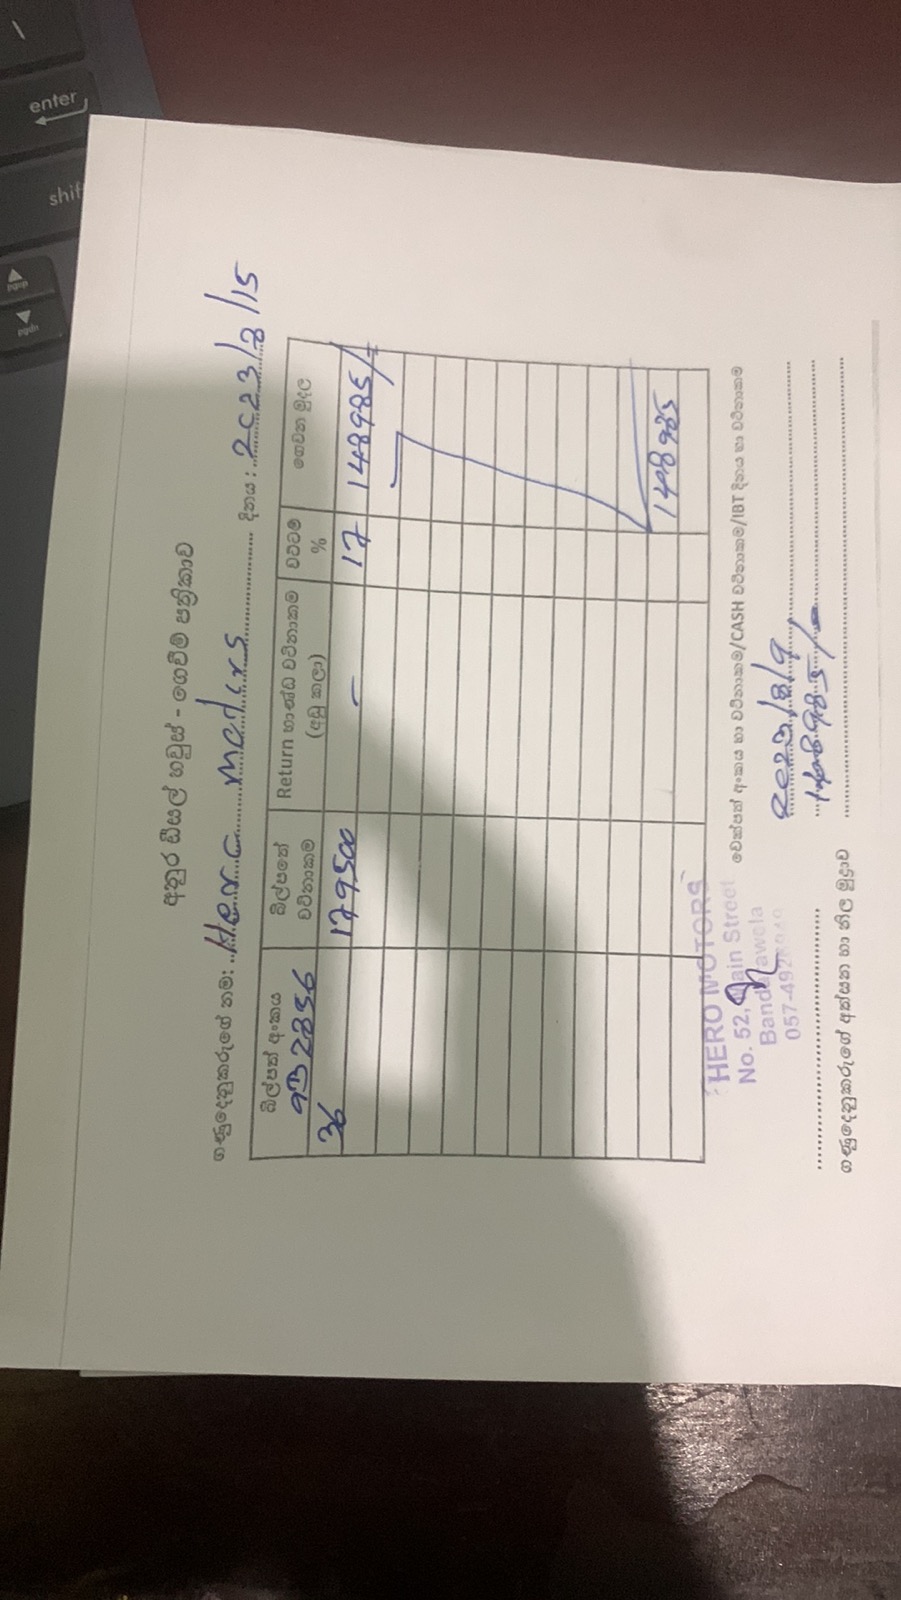 අනුර ඩීසල් හවුස් - ගෙවීම් පත්‍රිකාව
ගණුදෙනුකරුගේ නම: Hero motors දිනය: 2023/8/15
බිල්පත් අංකය බිල්පතේ වටිනාකම Return භාණ්ඩ වටිනාකම (අඩු කලා) වට්ටම් % ගෙවන මුදල
932856
36 179500 - 17 148985/=
148985
HERO MOTORS
No. 52, Main Street
Bandarawela
057-492
චෙක්පත් අංකය හා වටිනාකම/CASH වටිනාකම/IBT දිනය හා වටිනාකම
2023/8/9
148985/=
ගණුදෙනුකරුගේ අත්සන හා නිල මුද්‍රාව
enter
shift
pgup
pgdn
\